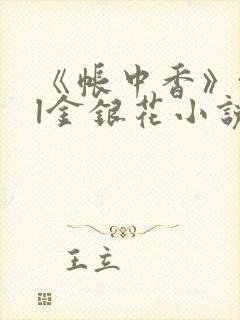 《帐中香》
|金银花小说
王立